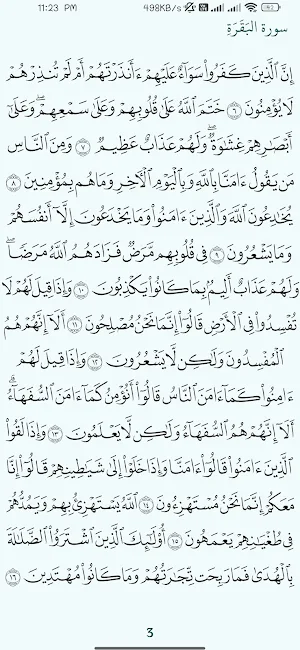 11:23 PM 498KB/s
سورة البَقَرَة
إِنَّ ٱلَّذِينَ كَفَرُوا۟ سَوَآءٌ عَلَيْهِمْ ءَأَنذَرْتَهُمْ أَمْ لَمْ تُنذِرْهُمْ
لَا يُؤْمِنُونَ ٦ خَتَمَ ٱللَّهُ عَلَىٰ قُلُوبِهِمْ وَعَلَىٰ سَمْعِهِمْ ۖ وَعَلَىٰٓ
أَبْصَٰرِهِمْ غِشَٰوَةٌ ۖ وَلَهُمْ عَذَابٌ عَظِيمٌ ٧ وَمِنَ ٱلنَّاسِ
مَن يَقُولُ ءَامَنَّا بِٱللَّهِ وَبِٱلْيَوْمِ ٱلْءَاخِرِ وَمَا هُم بِمُؤْمِنِينَ ٨
يُخَٰدِعُونَ ٱللَّهَ وَٱلَّذِينَ ءَامَنُوا۟ وَمَا يَخْدَعُونَ إِلَّآ أَنفُسَهُمْ
وَمَا يَشْعُرُونَ ٩ فِى قُلُوبِهِم مَّرَضٌ فَزَادَهُمُ ٱللَّهُ مَرَضًا ۖ
وَلَهُمْ عَذَابٌ أَلِيمٌۢ بِمَا كَانُوا۟ يَكْذِبُونَ ١٠ وَإِذَا قِيلَ لَهُمْ لَا
تُفْسِدُوا۟ فِى ٱلْأَرْضِ قَالُوٓا۟ إِنَّمَا نَحْنُ مُصْلِحُونَ ١١ أَلَآ إِنَّهُمْ هُمُ
ٱلْمُفْسِدُونَ وَلَٰكِن لَّا يَشْعُرُونَ ١٢ وَإِذَا قِيلَ لَهُمْ
ءَامِنُوا۟ كَمَآ ءَامَنَ ٱلنَّاسُ قَالُوٓا۟ أَنُؤْمِنُ كَمَآ ءَامَنَ ٱلسُّفَهَآءُ ۗ
أَلَآ إِنَّهُمْ هُمُ ٱلسُّفَهَآءُ وَلَٰكِن لَّا يَعْلَمُونَ ١٣ وَإِذَا لَقُوا۟
ٱلَّذِينَ ءَامَنُوا۟ قَالُوٓا۟ ءَامَنَّا وَإِذَا خَلَوْا۟ إِلَىٰ شَيَٰطِينِهِمْ قَالُوٓا۟ إِنَّا
مَعَكُمْ إِنَّمَا نَحْنُ مُسْتَهْزِءُونَ ١٤ ٱللَّهُ يَسْتَهْزِئُ بِهِمْ وَيَمُدُّهُمْ
فِى طُغْيَٰنِهِمْ يَعْمَهُونَ ١٥ أُو۟لَٰٓئِكَ ٱلَّذِينَ ٱشْتَرَوُا۟ ٱلضَّلَٰلَةَ
بِٱلْهُدَىٰ فَمَا رَبِحَت تِّجَٰرَتُهُمْ وَمَا كَانُوا۟ مُهْتَدِينَ ١٦
3